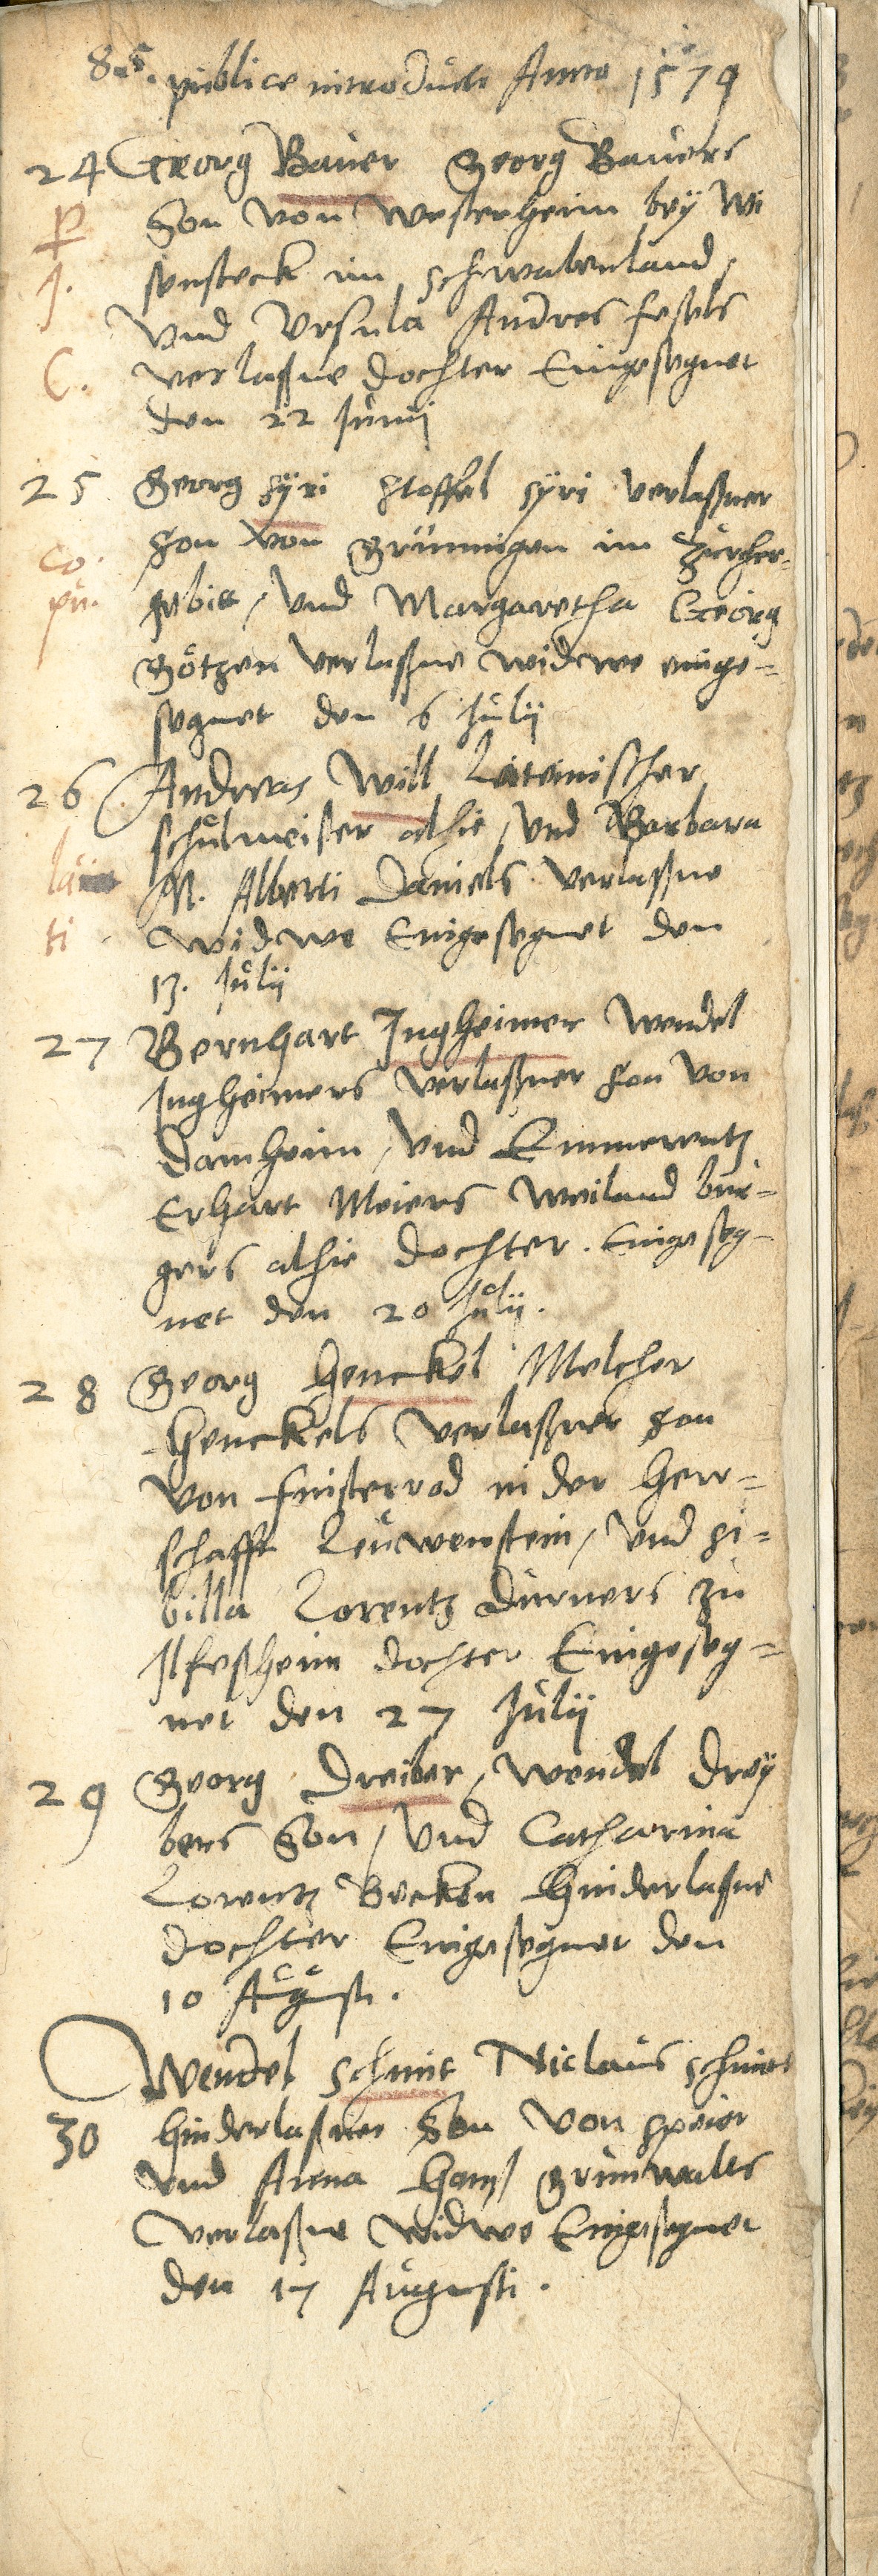 85. publice introducti Anno 1579
24 Georg Bauer Georg Bauers
P Son von Westerheim bey Wi
sensteck im schwabenland,
J. und Ursula Andres fesels
C. verlaßne dochter Eingesegnet
den 22 Junij
25 Georg syri stoffel syri verlaßner
son von Grünnigen im zürcher-
co. gebiet, und Margaretha Georg
pu. Götzen verlaßne widwe einge-
segnet den 6 Julij
26 Andreas Will Lateinischer
schulmeister alhie, und Barbara
M. Alberti Daniels verlaßne
ti widwe Eingesegnet den
13. Julij
27 Bernhart Ingheimer Wendel
Ingheimers verlaßner son von
Damheim, und Emmerentz
Erhart Meiers weiland bur-
gers alhie dochter. Eingeseg-
net den 20 Julij.
28 Georg Henckel Melcher
Henckels verlaßner son
von finsterrod in der Herr-
schafft Leuwenstein, und si-
billa Lorentz Durners zu
Ilfeßheim dochter Eingeseg-
net den 27 Julij
29 Georg Dreiber, Wendel Drey
bers Son, und Catharina
Lorentz Becken hinderlaßne
dochter Eingesegnet den
10 Augusti.
Wendel schmit Niclaus schmits
30 hinderlaßner Son von speier
und Anna Hans Grünwalts
verlaßne widwe Eingesegnet
den 17 Augusti.